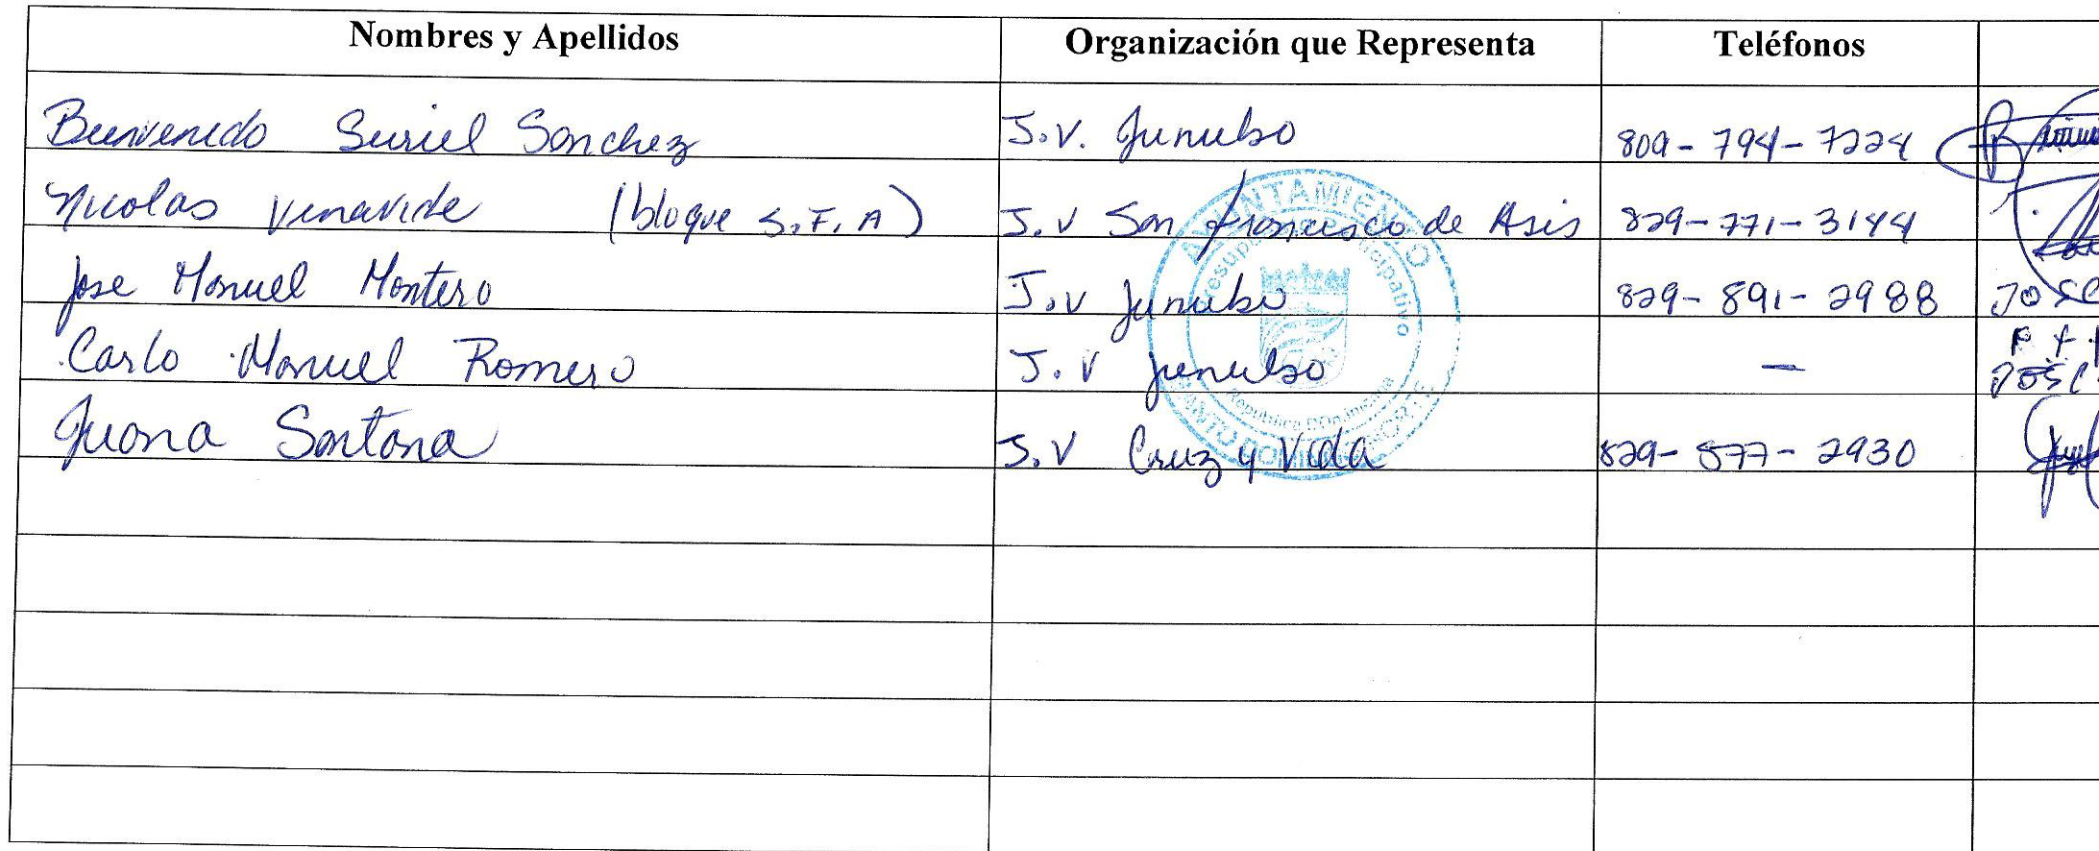 Nombres y Apellidos Organización que Representa Teléfonos
Bienvenido Suriel Sanchez J.V. Junubso 809-794-7224
Nicolas Venavide (bloque S.F.A) J.V San francisco de Asis 829-771-3144
Jose Manuel Montero J.V Junubso 829-891-2988 JOSE
Carlo Manuel Romero J.V junubso —
Juana Santana J.V Cruz y Vida 829-877-2930
AYUNTAMIENTO
SANTO DOMINGO NORTE
República Dominicana